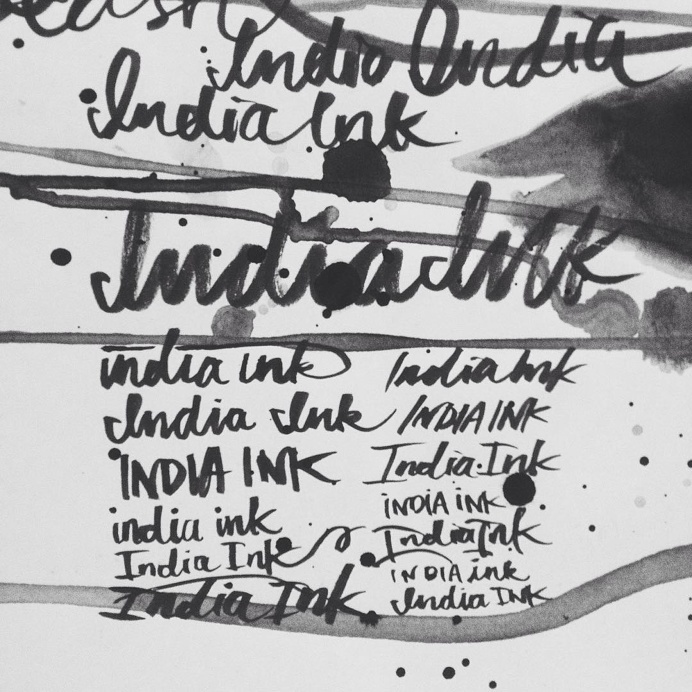 India India
India Ink
India Ink
india ink India Ink
India Ink INDIA INK
INDIA INK India Ink
india ink INDIA iNK
India Ink India Ink
India Ink INDIA ink
India INK